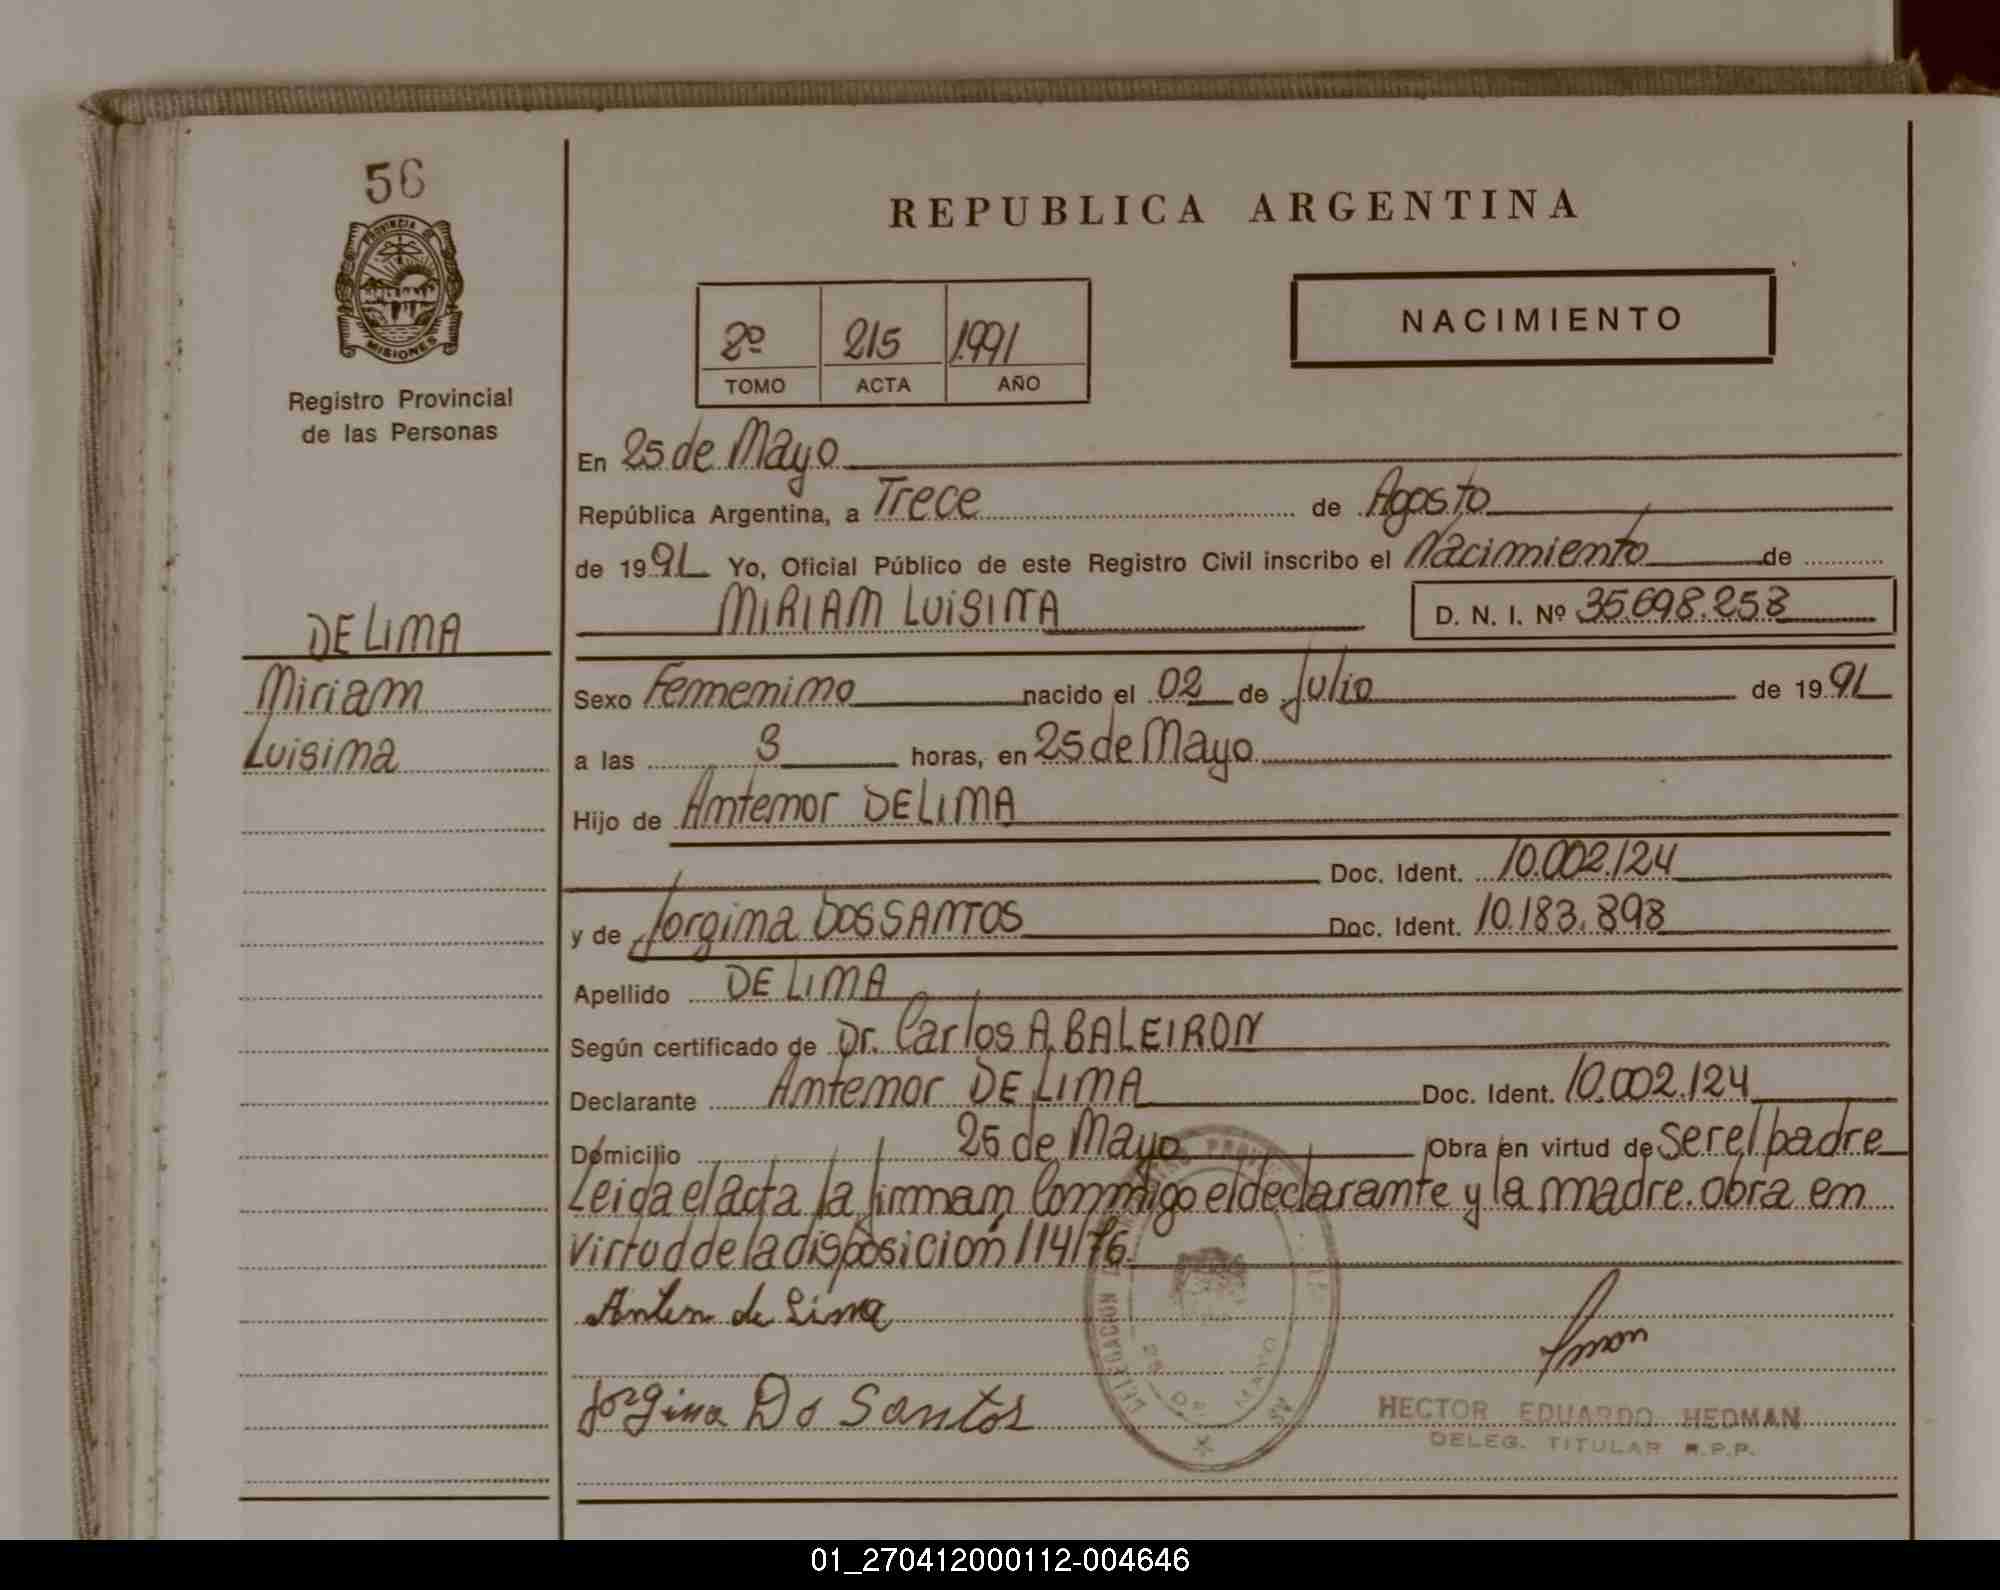 56
PROVINCIA DE
MISIONES
Registro Provincial
de las Personas
REPUBLICA ARGENTINA
2º 215 1991
TOMO ACTA AÑO
NACIMIENTO
En 25 de Mayo
República Argentina, a Trece de Agosto
de 1991 Yo, Oficial Público de este Registro Civil inscribo el Nacimiento de
MIRIAM LUISINA
D. N. I. Nº 35.698.258
DE LIMA
Miriam
Luisina
Sexo Femenino nacido el 02 de Julio de 1991
a las 3 horas, en 25 de Mayo
Hijo de Antenor DE LIMA
Doc. Ident. 10.002.124
y de Jorgina DOS SANTOS Doc. Ident. 10.183.898
Apellido DE LIMA
Según certificado de Dr. Carlos A. BALEIRON
Declarante Antenor DE LIMA Doc. Ident. 10.002.124
Domicilio 25 de Mayo Obra en virtud de ser el padre
Leida el acta la firman Conmigo el declarante y la madre. obra en
virtud de la disposición 114/76.
Anten de Lima
Jorgina Do Santos
DELEGACION
25 DE MAYO
HECTOR EDUARDO HEDMAN
DELEG. TITULAR R.P.P.
01_270412000112-004646